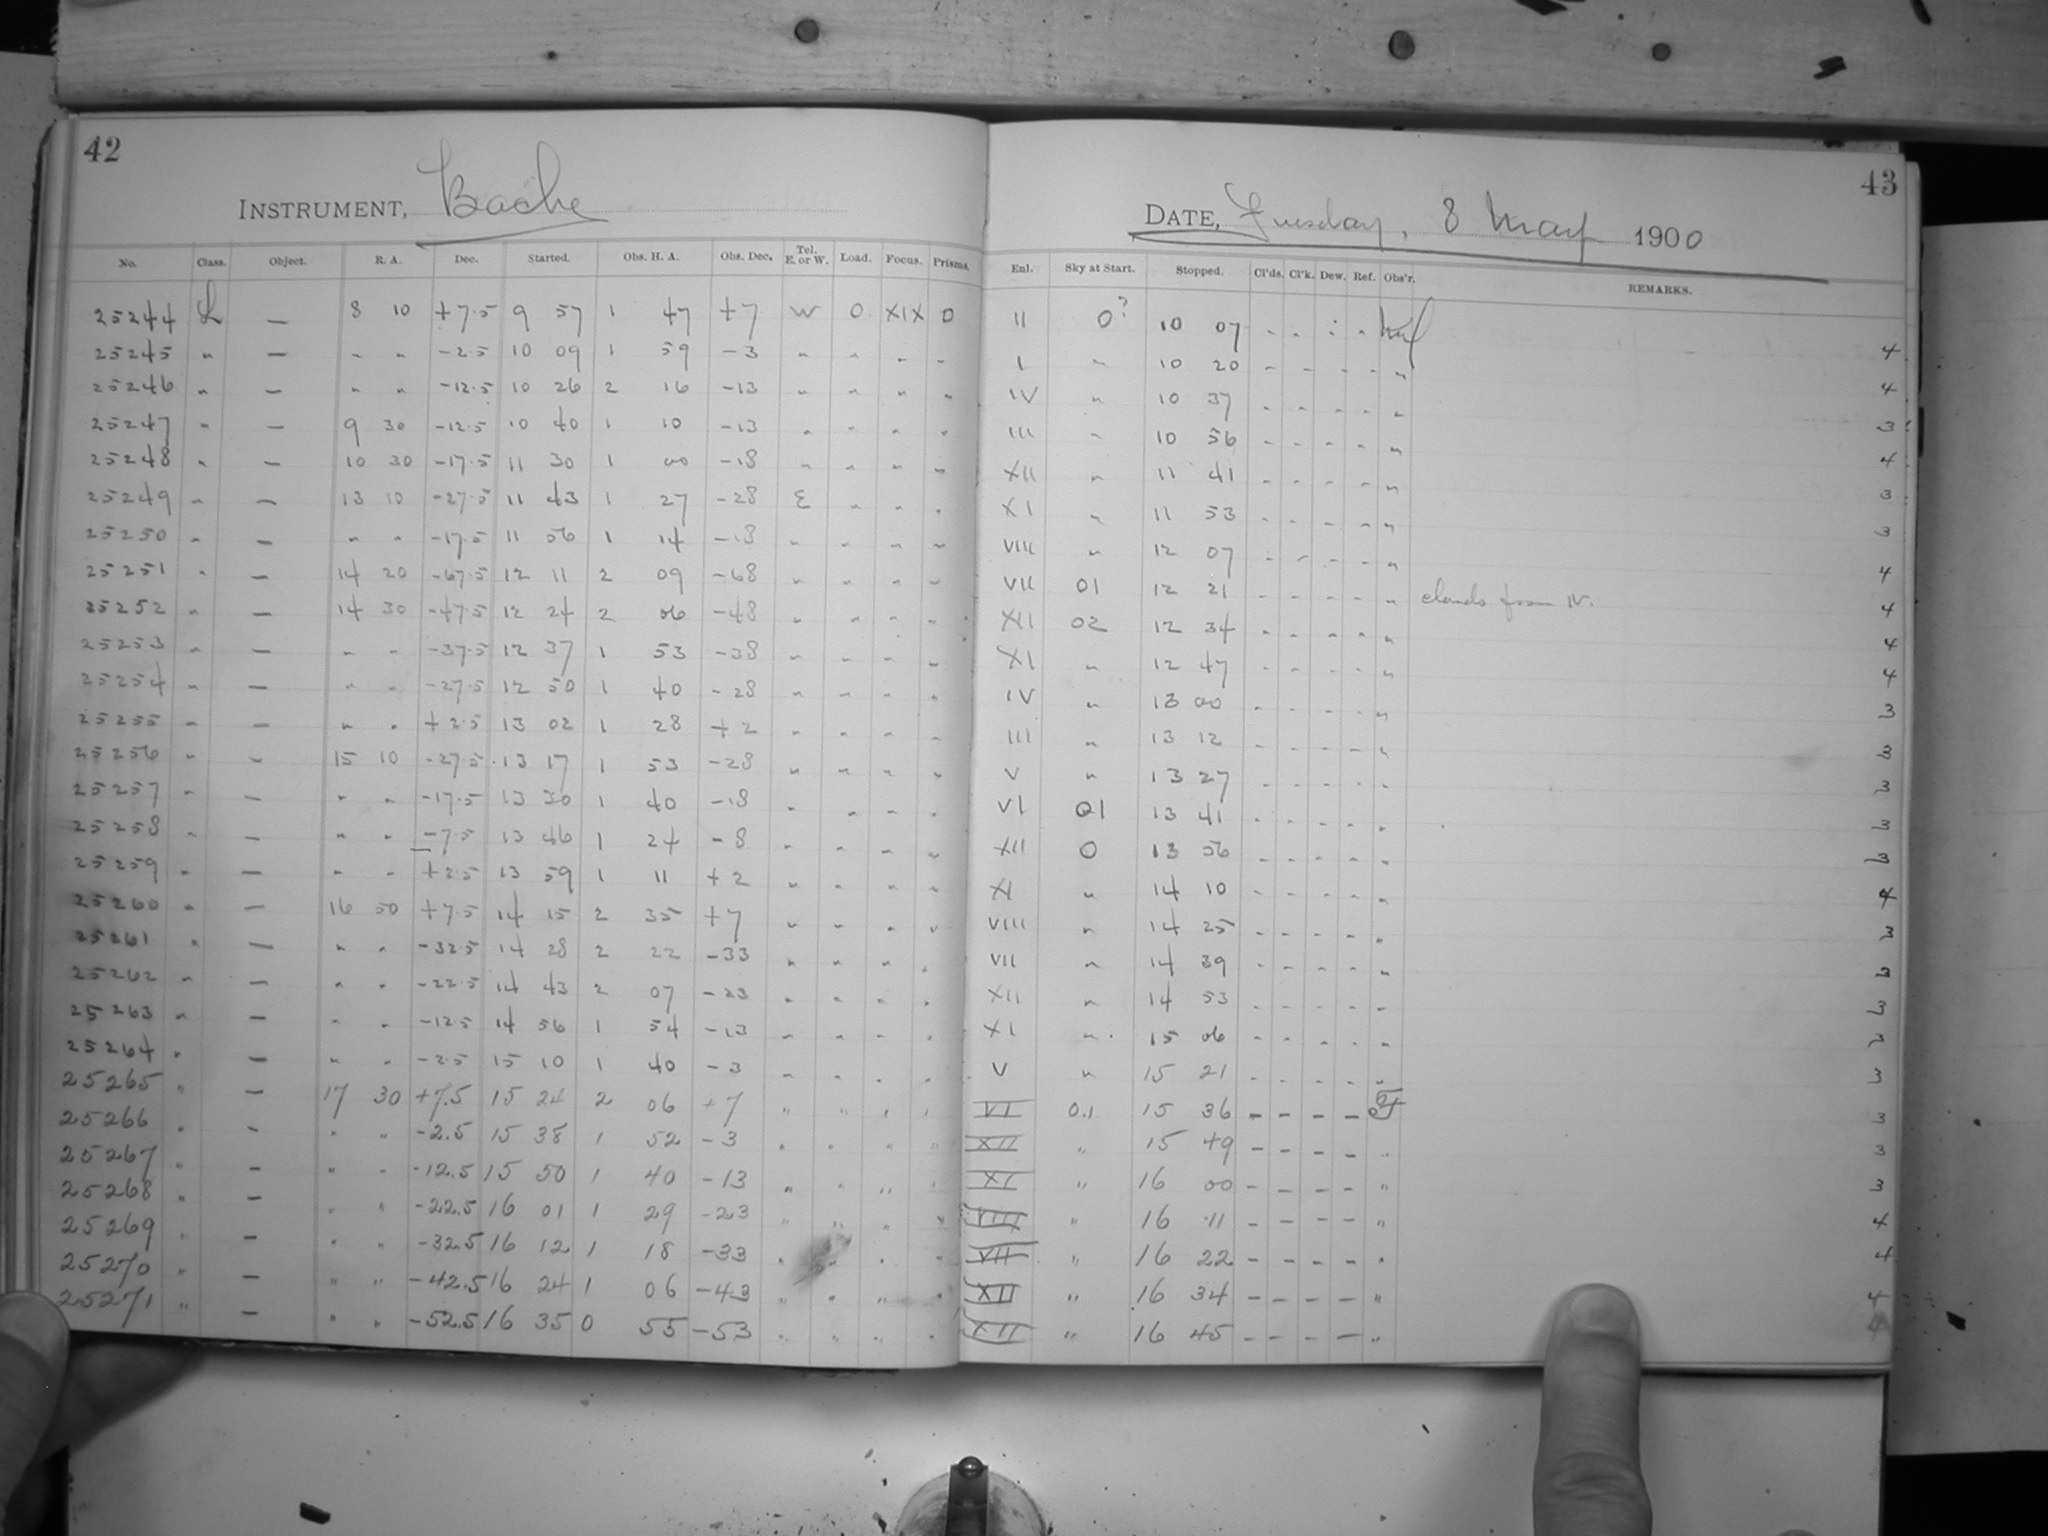 42
INSTRUMENT, Bache
No. Class. Object. R. A. Dec. Started. Obs. H. A. Obs. Dec. Tel. E. or W. Load. Focus. Prisms.
25244 L — 8 10 +7.5 9 57 1 47 +7 W 0 XIX 0
25245 " — " " -2.5 10 09 1 59 -3 " " " "
25246 " — " " -12.5 10 26 2 16 -13 " " " "
25247 " — 9 30 -12.5 10 40 1 10 -13 " " " "
25248 " — 10 30 -17.5 11 30 1 00 -18 " " " "
25249 " — 13 10 -27.5 11 43 1 27 -28 E " " "
25250 " — " " -17.5 11 56 1 14 -18 " " " "
25251 " — 14 20 -67.5 12 11 2 09 -68 " " " "
25252 " — 14 30 -47.5 12 24 2 06 -48 " " " "
25253 " — " " -37.5 12 37 1 53 -38 " " " "
25254 " — " " -27.5 12 50 1 40 -28 " " " "
25255 " — " " +2.5 13 02 1 28 +2 " " " "
25256 " — 15 10 -27.5 13 17 1 53 -28 " " " "
25257 " — " " -17.5 13 30 1 40 -18 " " " "
25258 " — " " -7.5 13 46 1 24 -8 " " " "
25259 " — " " +2.5 13 59 1 11 +2 " " " "
25260 " — 16 50 +7.5 14 15 2 35 +7 " " " "
25261 " — " " -32.5 14 28 2 22 -33 " " " "
25262 " — " " -22.5 14 43 2 07 -23 " " " "
25263 " — " " -12.5 14 56 1 54 -13 " " " "
25264 " — " " -2.5 15 10 1 40 -3 " " " "
25265 " — 17 30 +7.5 15 24 2 06 +7 " " " "
25266 " — " " -2.5 15 38 1 52 -3 " " " "
25267 " — " " -12.5 15 50 1 40 -13 " " " "
25268 " — " " -22.5 16 01 1 29 -23 " " " "
25269 " — " " -32.5 16 12 1 18 -33 " " " "
25270 " — " " -42.5 16 24 1 06 -43 " " " "
25271 " — " " -52.5 16 35 0 55 -53 " " " "
43
DATE, Tuesday, 8 May 1900
Enl. Sky at Start. Stopped. Cl'ds. Cl'k. Dew. Ref. Obs'r. REMARKS.
II 0? 10 07 - - - - 4
I " 10 20 - - - - " 4
IV " 10 37 - - - - " 3
III " 10 56 - - - - " 4
XII " 11 41 - - - - " 3
XI " 11 53 - - - - " 3
VIII " 12 07 - - - - " 4
VII 01 12 21 - - - - " clouds from N. 4
XII 02 12 34 - - - - " 4
XI " 12 47 - - - - " 4
IV " 13 00 - - - - " 3
III " 13 12 - - - - " 3
V " 13 27 - - - - " 3
VI 01 13 41 - - - - " 3
XII 0 13 56 - - - - " 3
XI " 14 10 - - - - " 4
VIII " 14 25 - - - - " 3
VII " 14 39 - - - - " 3
XII " 14 53 - - - - " 3
XI " 15 06 - - - - " 3
V " 15 21 - - - - " 3
VI 0.1 15 36 - - - - 3
XII " 15 49 - - - - " 3
XI " 16 00 - - - - " 3
VIII " 16 11 - - - - " 4
VII " 16 22 - - - - " 4
XII " 16 34 - - - - " 4
XII " 16 45 - - - - " 4